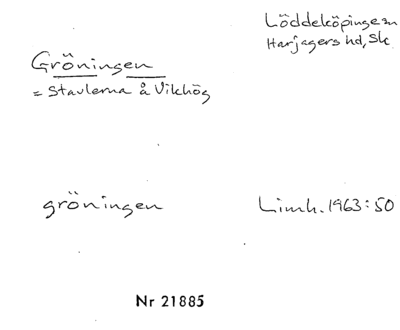 Löddeköpinge sn
Harjagers hd, Sk
Gröningen
= Stavlerna å Vikhög
gröningen
Limh. 1963:50
Nr 21885